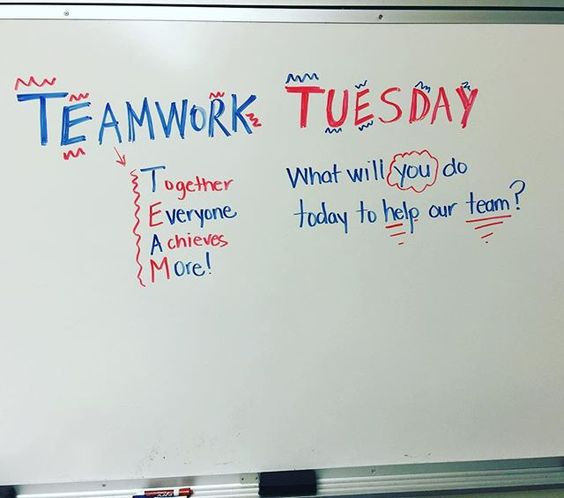 TEAMWORK TUESDAY
Together
Everyone
Achieves
More!
What will you do
today to help our team?